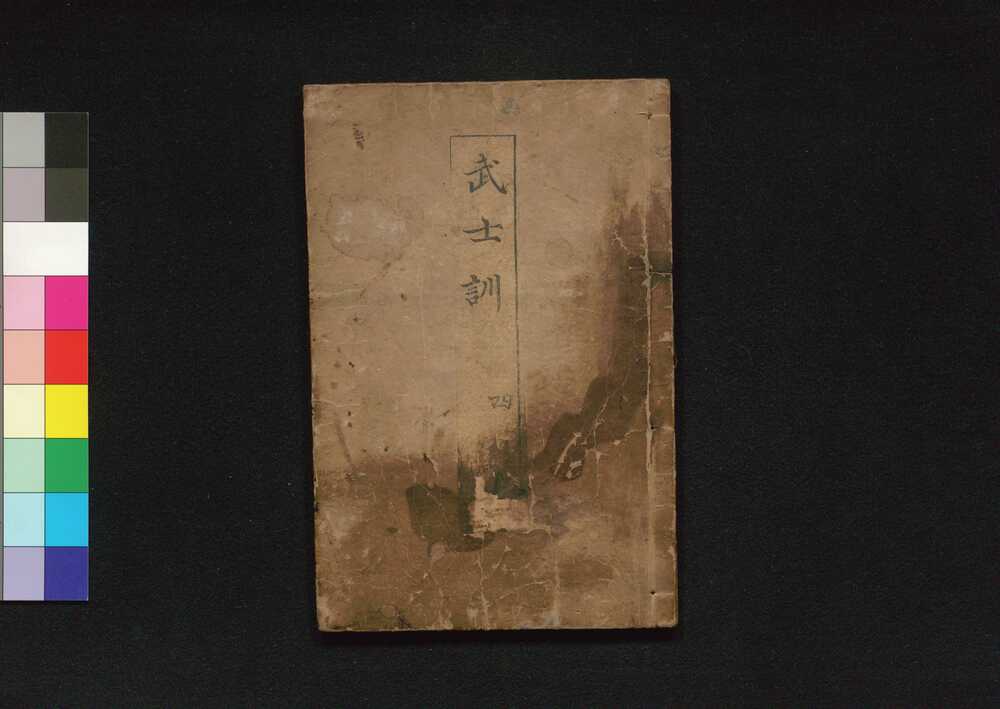 武士訓
四